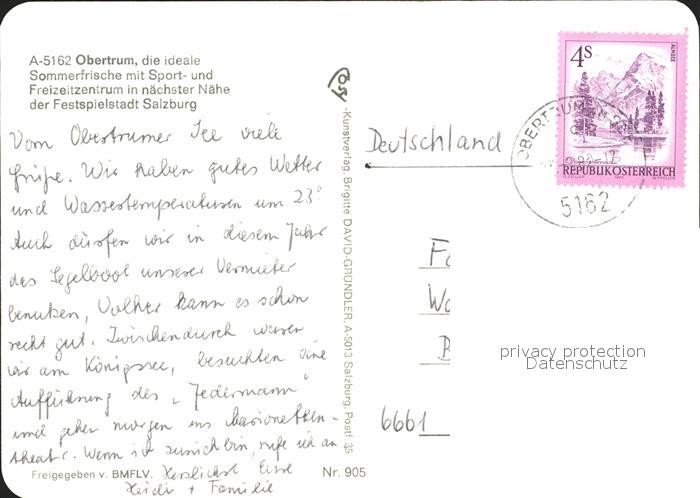 A-5162 Obertrum, die ideale
Sommerfrische mit Sport- und
Freizeitzentrum in nächster Nähe
der Festspielstadt Salzburg
Vom Obertrumer See viele
Grüße. Wir haben gutes Wetter
und Wassertemperaturen um 23°
Auch dürfen wir in diesem Jahr
das Segelboot unserer Vermieter
benutzen, Volker kann es schon
recht gut. Zwischendurch waren
wir am Königssee, besuchten eine
Aufführung des „Jedermann"
und gehen morgen ins Marionetten-
theater. Wenn ich zurück bin, rufe ich an
Herzlichst Eure
Heidi + Familie
Freigegeben v. BMFLV.
Nr. 905
Kunstverlag, Brigitte DAVID-GRÜNDLER, A-5013 Salzburg, Postf. 35
4S
ALMSEE
REPUBLIK ÖSTERREICH
OBERTRUM
5162
Deutschland
F
W
B
6661
privacy protection
Datenschutz